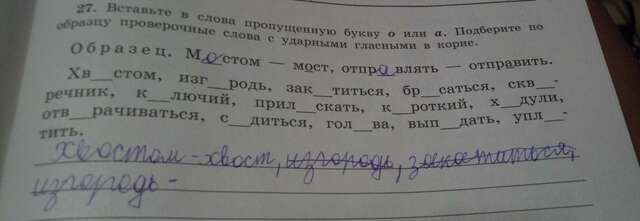 27. Вставьте в слова пропущенную букву о или а. Подберите по
образцу проверочные слова с ударными гласными в корне.
Образец. Мостом — мост, отправлять — отправить.
Хв__стом, изг__родь, зак__титься, бр__саться, скв__-
речник, к__лючий, прил__скать, к__роткий, х__дули,
отв__рачиваться, с__диться, гол__ва, вып__дать, упл__-
тить.
хвостом - хвост, изгородь, закатиться,
изгородь -